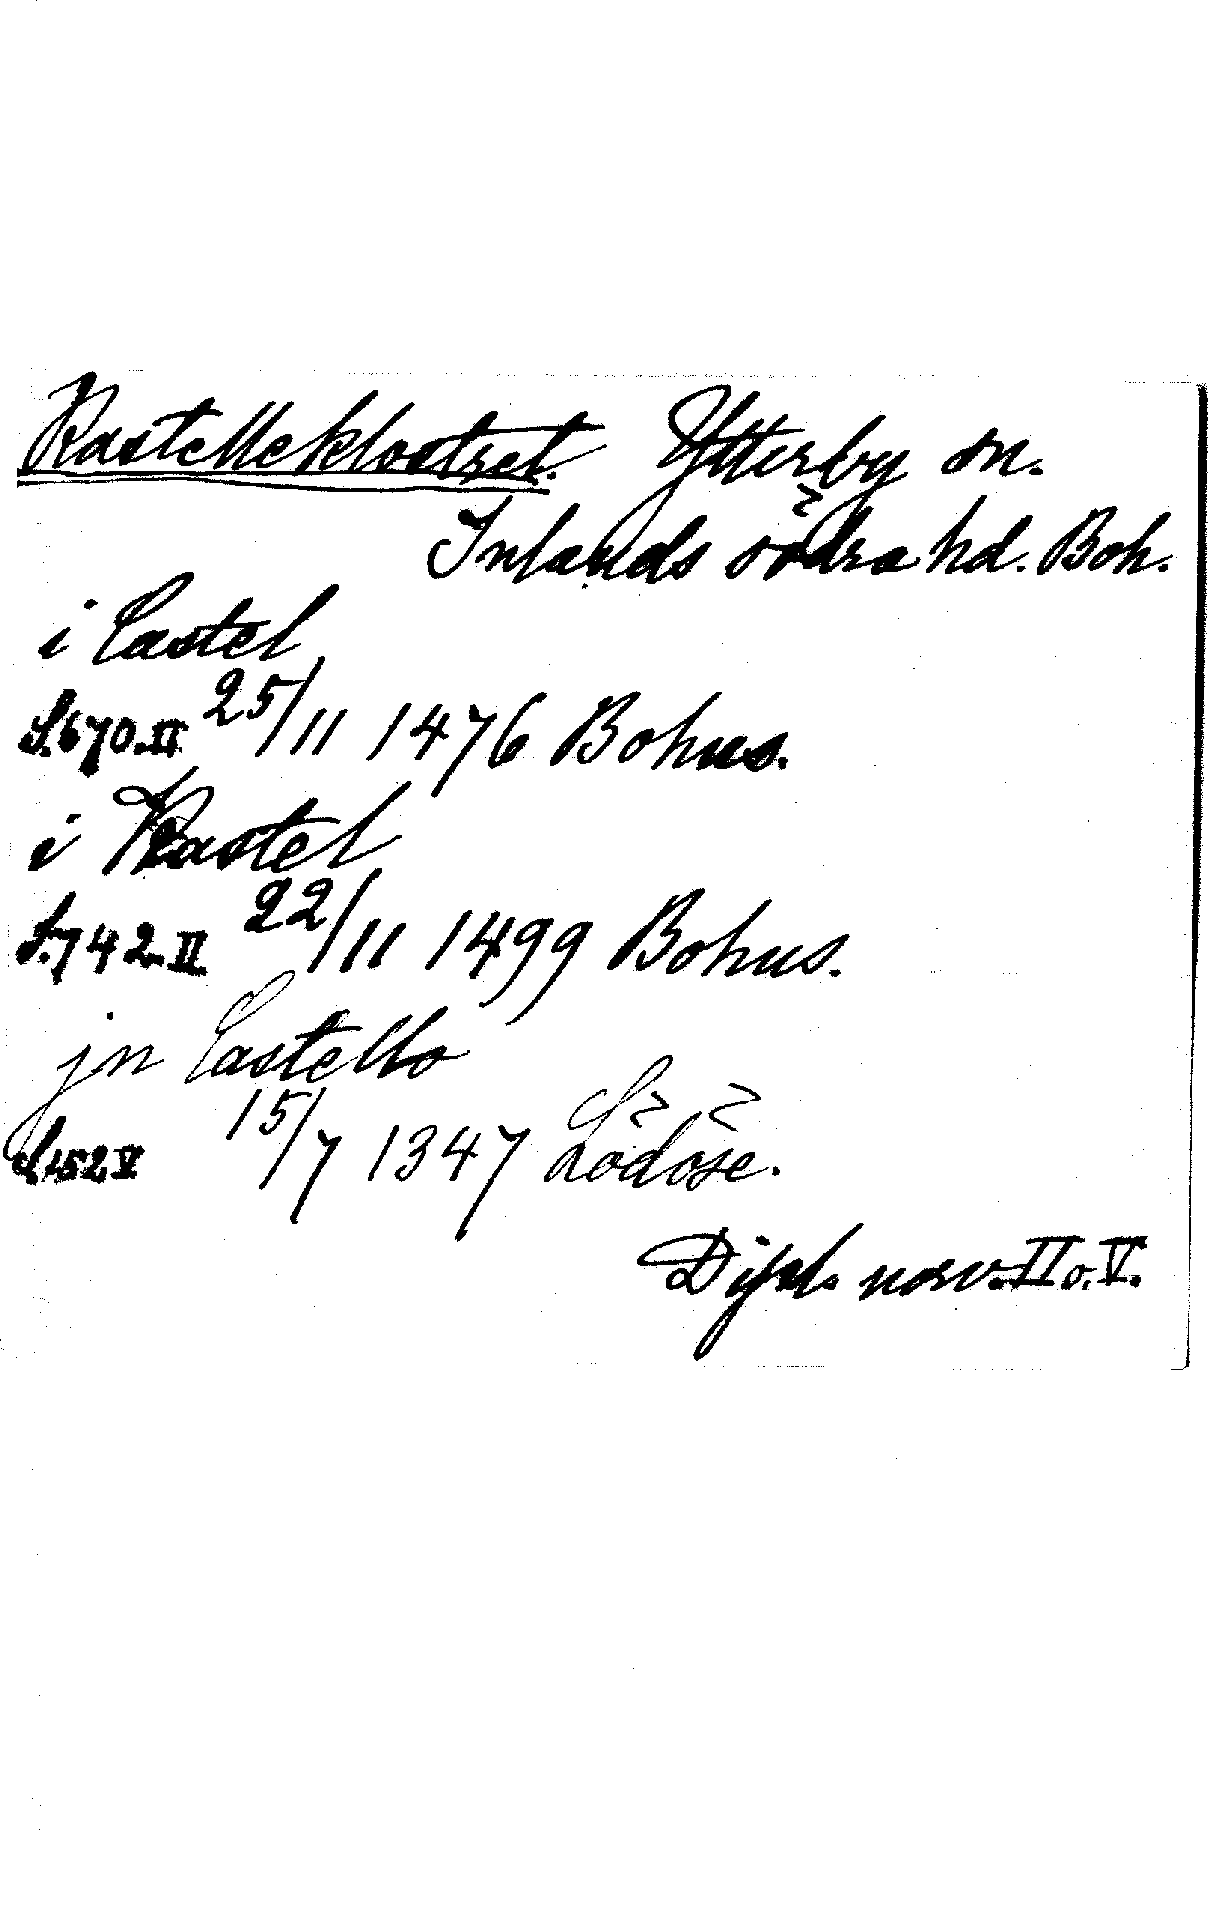 Kastelleklostret. Ytterby sn.
Inlands södra hd. Boh.
i Castel
S. 670. II 25/11 1476 Bohus.
i Kastel
S. 742. II 22/11 1499 Bohus.
jn Castello
S. 152 V 15/7 1347 Lödöse.
Dipl. norv. II o. V.